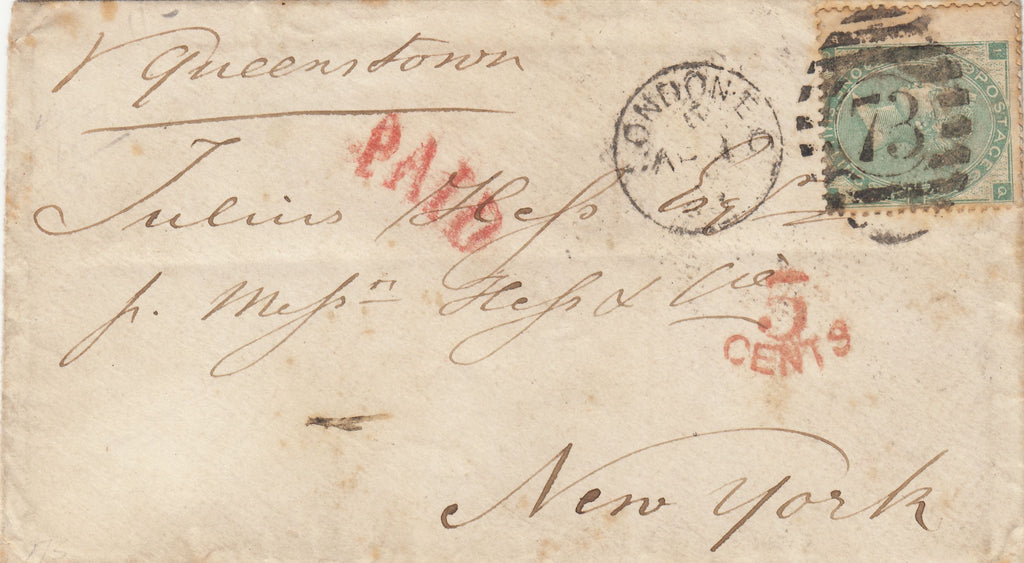 p Queenstown
PAID
LONDON E C
73
POSTAGE
Q
Julius Hess Esqr
p. Messrs Hess & Co
5
CENTS
New York